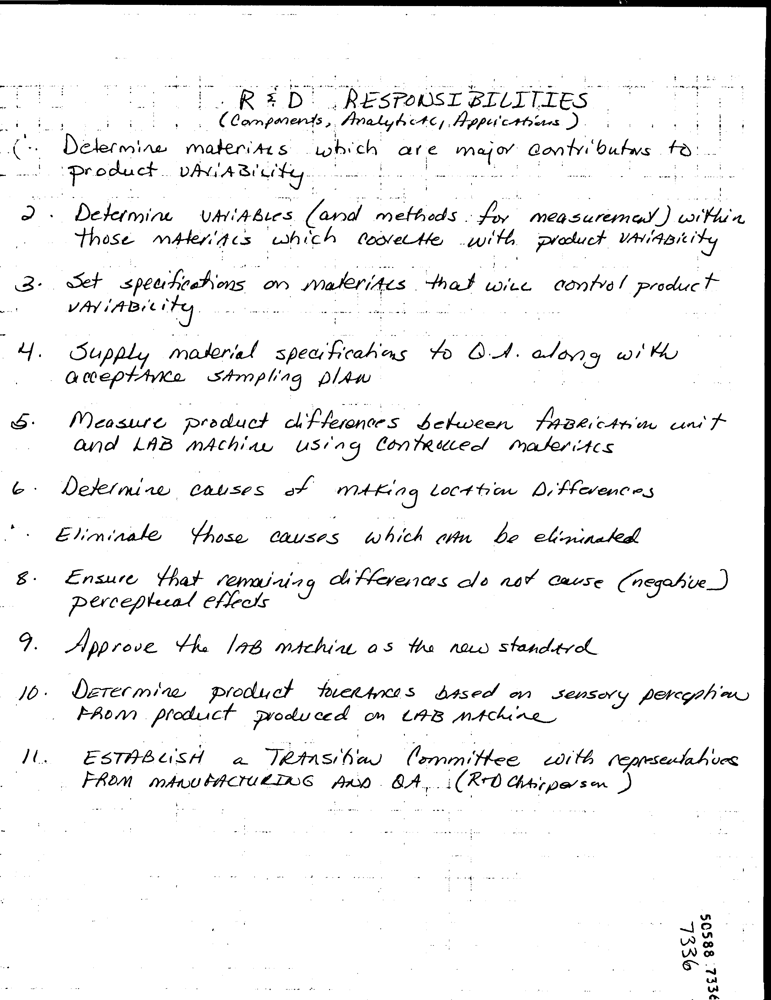 R & D RESPONSIBILITIES
(Components, Analytical, Applications)
1. Determine materials which are major contributors to
product variability
2. Determine variables (and methods for measurement) within
those materials which correlate with product variability
3. Set specifications on materials that will control product
variability
4. Supply material specifications to Q.A. along with
acceptance sampling plan
5. Measure product differences between fabrication unit
and LAB machine using controlled materials
6. Determine causes of making location Differences
. Eliminate those causes which can be eliminated
8. Ensure that remaining differences do not cause (negative)
perceptual effects
9. Approve the LAB machine as the new standard
10. Determine product tolerances based on sensory perception
FROM product produced on LAB machine
11. ESTABLISH a TRANSITION Committee with representatives
FROM MANUFACTURING AND QA. (R+D Chairperson)
50588 7336
7336